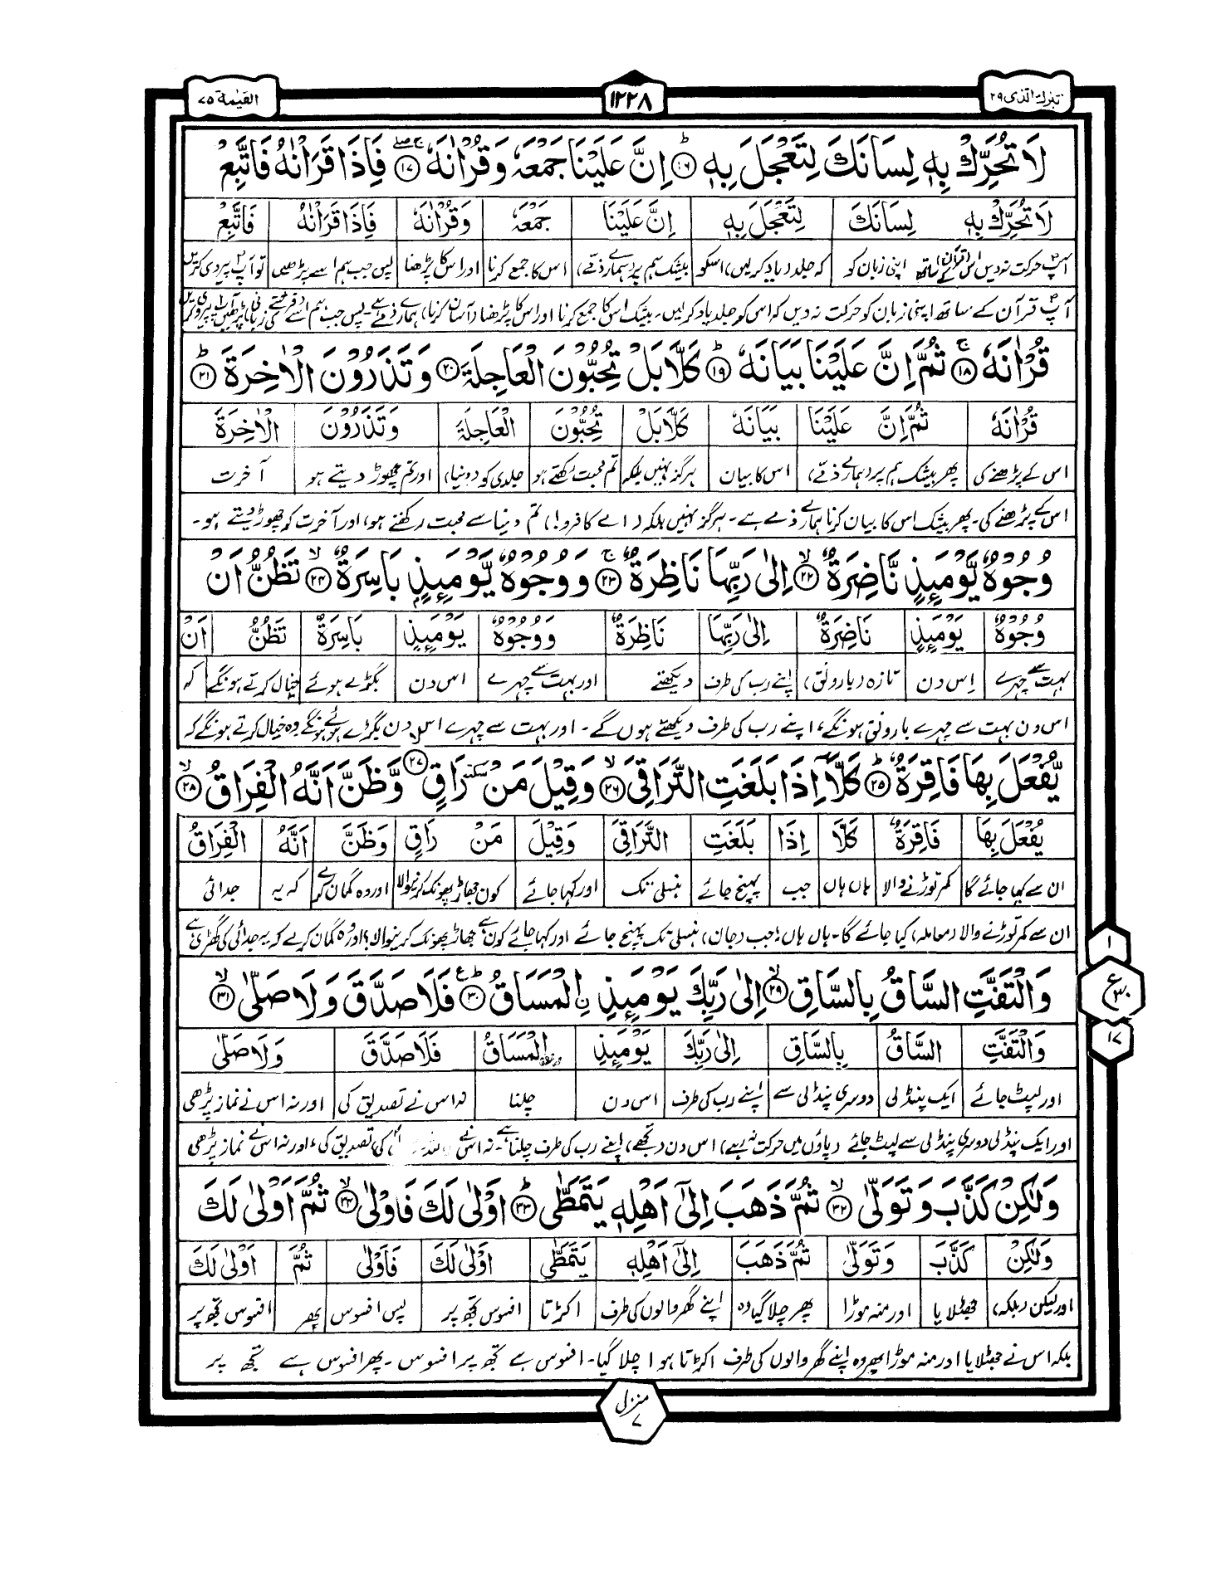 تبٰرك الذى ٢٩
١٢٢٨
القيٰمة ٧٥
لَا تُحَرِّكْ بِهٖ لِسَانَكَ لِتَعْجَلَ بِهٖ ؕ‏﴿۱۶﴾ اِنَّ عَلَيْنَا جَمْعَهٗ وَقُرْاٰنَهٗ ۚۖ‏﴿۱۷﴾ فَاِذَا قَرَاْنٰهُ فَاتَّبِعْ
لَا تُحَرِّكْ بِهٖ لِسَانَكَ لِتَعْجَلَ بِهٖ اِنَّ عَلَيْنَا جَمْعَهٗ وَقُرْاٰنَهٗ فَاِذَا قَرَاْنٰهُ فَاتَّبِعْ
آپؐ حرکت نہ دیں اس (قرآن) کے ساتھ اپنی زبان کو کہ جلد (یاد کرلیں) اسکو بیشک ہم پر (ہمارے ذمّے) اس کا جمع کرنا اور اس کا پڑھنا پس جب ہم اسے پڑھیں تو آپؐ پیروی کریں
آپؐ قرآن کے ساتھ اپنی زبان کو حرکت نہ دیں کہ اس کو جلد یاد کرلیں۔ بیشک اس کا جمع کرنا اور اس کا پڑھنا (آسان کرنا) ہمارے ذمے ہے۔ پس جب ہم اسے (فرشتے کی زبانی) پڑھیں آپؐ پیروی کریں
قُرْاٰنَهٗ ۚ‏﴿۱۸﴾ ثُمَّ اِنَّ عَلَيْنَا بَيَانَهٗ ؕ‏﴿۱۹﴾ كَلَّا بَلْ تُحِبُّوْنَ الْعَاجِلَةَ ۙ‏﴿۲۰﴾ وَتَذَرُوْنَ الْاٰخِرَةَ ؕ‏﴿۲۱﴾
قُرْاٰنَهٗ ثُمَّ اِنَّ عَلَيْنَا بَيَانَهٗ كَلَّا بَلْ تُحِبُّوْنَ الْعَاجِلَةَ وَتَذَرُوْنَ الْاٰخِرَةَ
اس کے پڑھنے کی پھر بیشک ہم پر (ہمارے ذمّے) اس کا بیان ہرگز نہیں بلکہ تم محبت رکھتے ہو جلدی کو (دنیا) اور تم چھوڑ دیتے ہو آخرت
اس کے پڑھنے کی۔ پھر بیشک اس کا بیان کرنا ہمارے ذمے ہے۔ ہرگز نہیں بلکہ (اے کافرو!) تم دنیا سے محبت رکھتے ہو، اور آخرت کو چھوڑ دیتے ہو۔
وُجُوْهٌ يَّوْمَئِذٍ نَّاضِرَةٌ ۙ‏﴿۲۲﴾ اِلٰى رَبِّهَا نَاظِرَةٌ ۚ‏﴿۲۳﴾ وَوُجُوْهٌ يَّوْمَئِذٍۭ بَاسِرَةٌ ۙ‏﴿۲۴﴾ تَظُنُّ اَنْ
وُجُوْهٌ يَوْمَئِذٍ نَاضِرَةٌ اِلٰى رَبِّهَا نَاظِرَةٌ وَوُجُوْهٌ يَوْمَئِذٍ بَاسِرَةٌ تَظُنُّ اَنْ
بہت سے چہرے اِس دن تازہ (بارونق) اپنے رب کی طرف دیکھتے اور بہت سے چہرے اس دن بگڑے ہوئے خیال کرتے ہونگے کہ
اس دن بہت سے چہرے بارونق ہونگے، اپنے رب کی طرف دیکھتے ہوں گے۔ اور بہت سے چہرے اس دن بگڑے ہوئے ہونگے وہ خیال کرتے ہونگے کہ
يُّفْعَلَ بِهَا فَاقِرَةٌ ؕ‏﴿۲۵﴾ كَلَّاۤ اِذَا بَلَغَتِ التَّرَاقِىَ ۙ‏﴿۲۶﴾ وَقِيْلَ مَنْ ٚ سكتة رَاقٍ ۙ‏﴿۲۷﴾ وَّظَنَّ اَنَّهُ الْفِرَاقُ ۙ‏﴿۲۸﴾
يُفْعَلَ بِهَا فَاقِرَةٌ كَلَّا اِذَا بَلَغَتِ التَّرَاقِىَ وَقِيْلَ مَنْ رَاقٍ وَظَنَّ اَنَّهُ الْفِرَاقُ
ان سے کہا جائے گا کمر توڑنے والا ہاں ہاں جب پہنچ جائے ہنسلی تک اور کہا جائے کون جھاڑ پھونک کرنیوالا اور وہ گمان کرے کہ یہ جدائی
ان سے کمر توڑنے والا (معاملہ) کیا جائے گا۔ ہاں ہاں! جب (جان) ہنسلی تک پہنچ جائے اور کہا جائے کون ہے جھاڑ پھونک کرنیوالا؟ اور وہ گمان کرے کہ یہ جدائی کی گھڑی ہے
وَالْتَفَّتِ السَّاقُ بِالسَّاقِ ۙ‏﴿۲۹﴾ اِلٰى رَبِّكَ يَوْمَئِذِ ۨالْمَسَاقُ ؕ‏﴿۳۰﴾ فَلَا صَدَّقَ وَلَا صَلّٰى ۙ‏﴿۳۱﴾
وَالْتَفَّتِ السَّاقُ بِالسَّاقِ اِلٰى رَبِّكَ يَوْمَئِذِ ۨالْمَسَاقُ فَلَا صَدَّقَ وَلَا صَلّٰى
اور لپٹ جائے ایک پنڈلی دوسری پنڈلی سے اپنے رب کی طرف اس دن چلنا نہ اس نے تصدیق کی اور نہ اس نے نماز پڑھی
اور ایک پنڈلی دوسری پنڈلی سے لپٹ جائے (پاؤں میں حرکت نہ رہے)، اس دن (تجھے) اپنے رب کی طرف چلنا ہے۔ نہ اس نے کی تصدیق کی، اور نہ اس نے نماز پڑھی
وَلٰكِنْ كَذَّبَ وَتَوَلّٰى ۙ‏﴿۳۲﴾ ثُمَّ ذَهَبَ اِلٰٓى اَهْلِهٖ يَتَمَطّٰى ؕ‏﴿۳۳﴾ اَوْلٰى لَكَ فَاَوْلٰى ۙ‏﴿۳۴﴾ ثُمَّ اَوْلٰى لَكَ
وَلٰكِنْ كَذَّبَ وَتَوَلّٰى ثُمَّ ذَهَبَ اِلٰٓى اَهْلِهٖ يَتَمَطّٰى اَوْلٰى لَكَ فَاَوْلٰى ثُمَّ اَوْلٰى لَكَ
اور لیکن (بلکہ) جھٹلایا اور منہ موڑا پھر چلا گیا وہ اپنے گھر والوں کی طرف اکڑتا افسوس تجھ پر پس افسوس پھر افسوس تجھ پر
بلکہ اس نے جھٹلایا اور منہ موڑا پھر وہ اپنے گھر والوں کی طرف اکڑتا ہوا چلا گیا۔ افسوس ہے تجھ پر افسوس۔ پھر افسوس ہے تجھ پر
١
ع ٣٠
١٧
منزل ٧